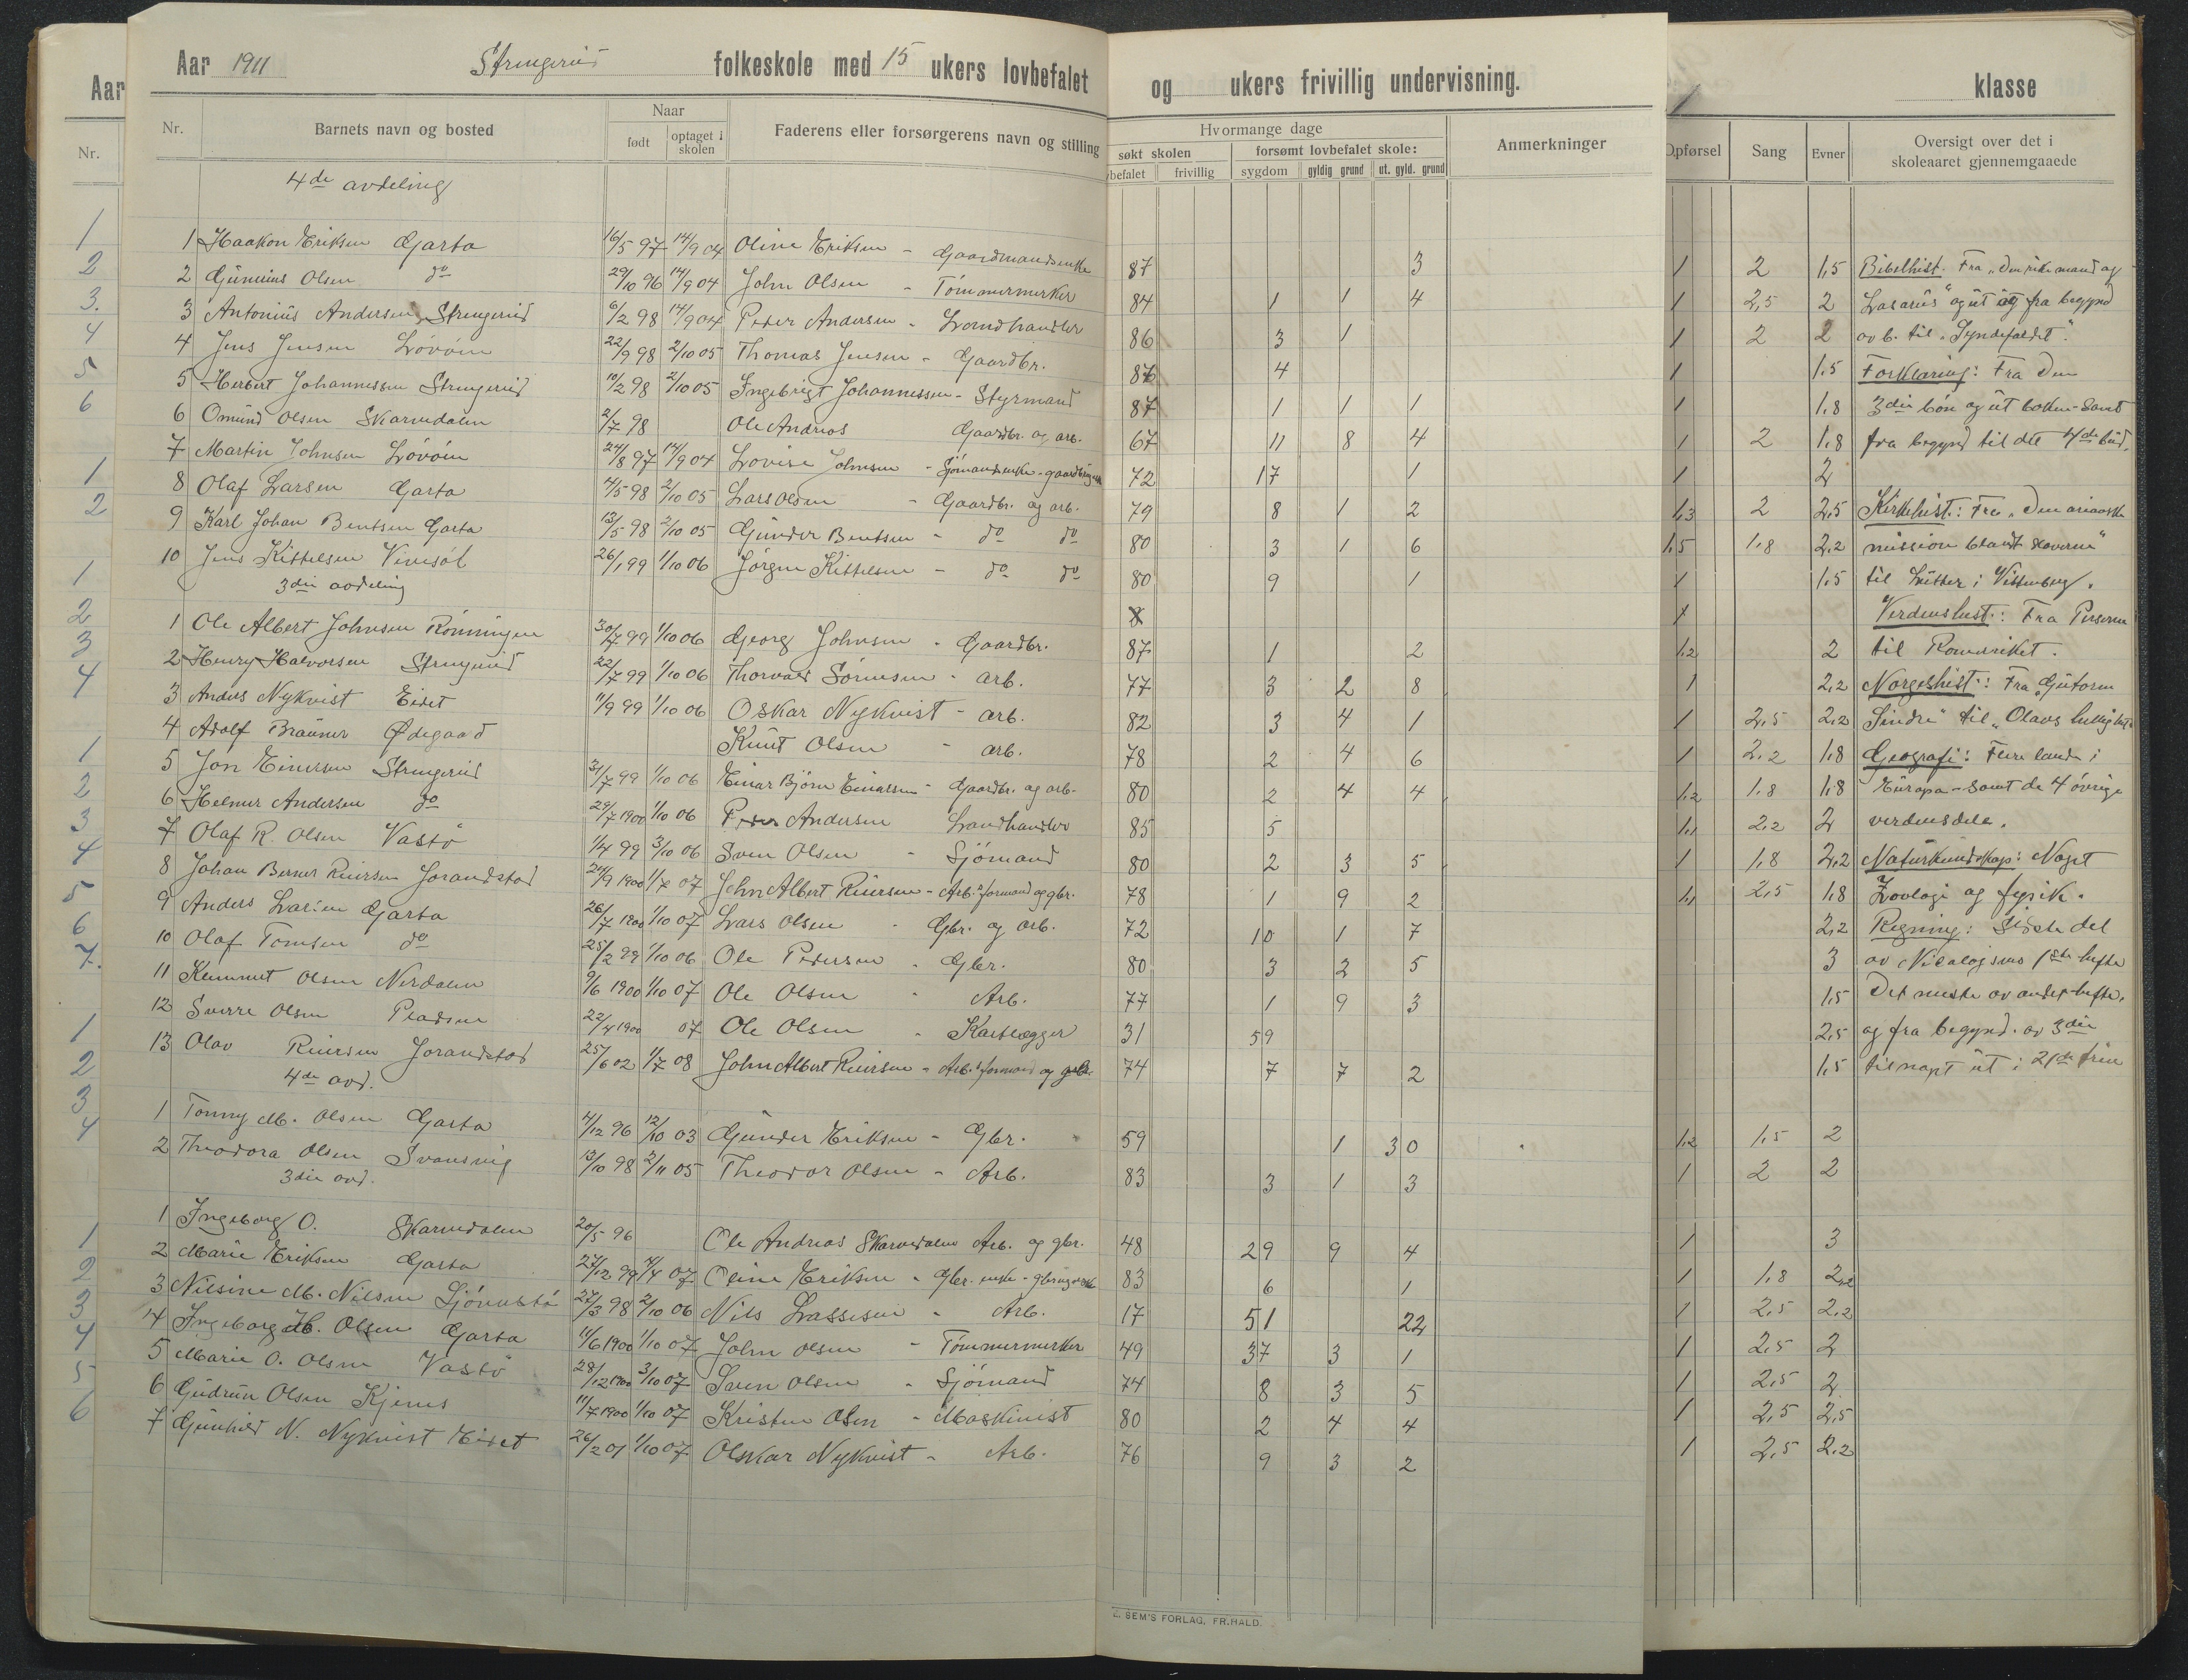 Aar 1911 Strengereid folkeskole med 15 ukers lovbefalet og ukers frivillig undervisning.
Nr. Barnets navn og bosted Naar født optaget i skolen Faderens eller forsørgerens navn og stilling
Hvormange dage søkt skolen forsømt lovbefalet skole: Anmerkninger
befalet frivillig sygdom gyldig grund ut. gyld. grund
4de avdeling
1 Haakon Eriksen Garta 16/5 97 14/9 04 Oline Eriksen - Gaardmandsenke 87 3
2 Gunnius Olsen do 29/10 96 14/9 04 John Olsen - Tømmermerker 84 1 1 4
3 Antonius Andersen Strengereid 6/2 98 14/9 04 Peder Andersen - Landhandler 86 3 1
4 Jens Jensen Løvøen 22/9 98 2/10 05 Thomas Jensen - Gaardbr. 86 4
5 Herbert Johannessen Strengereid 10/2 98 2/10 05 Ingebrigt Johannessen - Styrmand 87 1 1 1
6 Omund Olsen Skarvedalen 2/7 98 Ole Andreas Gaardbr. og arb. 67 11 8 4
7 Martin Johnsen Løvøen 24/8 97 14/9 04 Lovise Johnsen - Sjømandsenke - 72 17 1
8 Olaf Larsen Garta 4/5 98 2/10 05 Lars Olsen - Gaardbr. og arb. 79 8 1 2
9 Karl Johan Bentsen Garta 13/5 98 2/10 05 Gunder Bentsen - do do 80 3 1 6
10 Jens Kittelsen Vinesøl 26/1 99 1/10 06 Jørgen Kittelsen - do do 80 9 1
3die avdeling
1 Ole Albert Johnsen Rønningen 30/7 99 1/10 06 Georg Johnsen - Gaardbr. 87 1 2
2 Henry Halvorsen Strengereid 22/7 99 1/10 06 Thorvald Sørensen - arb. 77 3 2 8
3 Anders Nykvist Eidet 11/9 99 1/10 06 Oskar Nykvist - arb. 82 3 4 1
4 Adolf Brauner Ødegaard Knut Olsen - arb. 78 2 4 6
5 Jon Einersen Strengereid 31/7 99 1/10 06 Einar Bjørn Einarsen - Gaardbr. og arb. 80 2 4 4
6 Helmer Andersen do 29/7 1900 1/10 06 Peder Andersen Landhandler 85 5
7 Olaf R. Olsen Vastø 1/4 99 3/10 06 Sven Olsen - Sjømand 80 2 3 5
8 Johan Berner Reiersen Jorandstad 24/9 1900 1/7 07 John Albert Reiersen - Arb.formand og gbr. 78 1 9 2
9 Anders Larsen Garta 26/7 1900 1/10 07 Lars Olsen - Gbr. og arb. 72 10 1 7
10 Olaf Tomsen do 25/2 99 1/10 06 Ole Pedersen - Gbr. 80 3 2 5
11 Kummet Olsen Nerdalen 9/6 1900 1/10 07 Ole Olsen - Arb. 77 1 9 3
12 Sverre Olsen 22/4 1900 07 Ole Olsen - 31 59
13 Olav Reiersen Jorandstad 25/6 02 1/7 08 John Albert Reiersen - Arb.formand og gbr. 74 7 7 2
4de avd.
1 Tonny M. Olsen Garta 4/12 96 12/10 03 Gunder Eriksen - Gbr. 59 1 30
2 Theodora Olsen Svansvig 13/10 98 2/11 05 Theodor Olsen - Arb. 83 3 1 3
3die avd.
1 Ingeborg O. Skarvedalen 20/5 96 Ole Andreas Skarvedalen Arb. og gbr. 48 29 9 4
2 Marie Eriksen Garta 27/12 99 4/4 07 Oline Eriksen - Gbr. enke - 83 6 1
3 Nilsine M. Nilsen 27/3 98 2/10 06 Nils Lassesen - Arb. 17 51 22
4 Ingeborg M. Olsen Garta 11/6 1900 1/10 07 John Olsen - Tømmermerker 49 37 3 1
5 Marie O. Olsen Vastø 28/12 1900 3/10 07 Sven Olsen - Sjømand 74 8 3 5
6 Gudrun Olsen Kjenes 11/7 1900 1/10 07 Kristen Olsen - Maskinist 80 2 4 4
7 Gunhild N. Nykvist Eidet 26/2 01 1/10 07 Olskar Nykvist - Arb. 76 9 3 2
E. SEM'S FORLAG, FR.HALD.
klasse
Opførsel Sang Evner Oversigt over det i skoleaaret gjennemgaaede
1 2 1,5 Bibelhist. Fra "Den rike mand og
1 2,5 2 Lasarus" og ut og fra begynd
1 2 2 av b. til "Syndefaldet".
1 1,5 Forklaring: Fra Den
1 1,8 3die bøn og ut boken - Samt
1 2 1,8 fra begynd til det 4de bud.
1 2
1,3 2 2,5 Kirkehist.: Fra "Den arianske
1,5 1,8 2,2 mission blandt slaverne"
1 1,5 til Luther i Wittenberg.
1 Verdenshist.: Fra Perserne
1,2 2 til Romerriket.
1 2,2 Norgeshist.: Fra "Gutorm
1 2,5 2,2 Sindre" til "Olavs hellighet"
1 2,2 1,8 Geografi: Flere lande i
1,2 1,8 1,8 Europa - samt de 4 øvrige
1,1 2,2 2 verdensdele.
1 1,8 2,2 Naturkundskap: Noget
1,1 2,5 1,8 Zoologi og fysik.
2,2 Regning: Sidste del
3 av Nicolaisens 1ste hefte
1,5 Det meste av andet hefte,
2,5 og fra begynd. av 3die
1,5 til noget ut i
1,2 1,5 2
1 2 2
1 3
1 1,8 2,2
1 2,5 2,2
1 2,5 2
1 2,5 2
1 2,5 2,5
1 2,5 2,2
Aar
Nr.
1
2
3.
4
5
6
1
2
1
2
3
4
1
2
3
4
5
6
7.
1
2
3
4
1
2
3
4
5
6